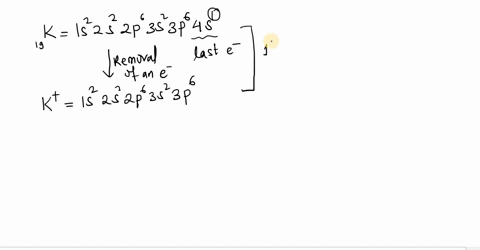 ₁₉K = 1s² 2s² 2p⁶ 3s² 3p⁶ 4s¹
last e⁻
Removal of an e⁻
K⁺ = 1s² 2s² 2p⁶ 3s² 3p⁶